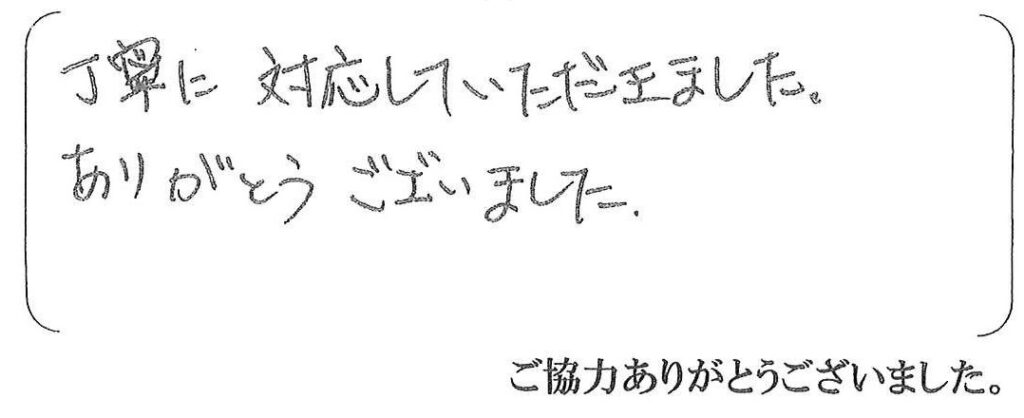 丁寧に対応していただきました。
ありがとうございました.
ご協力ありがとうございました。